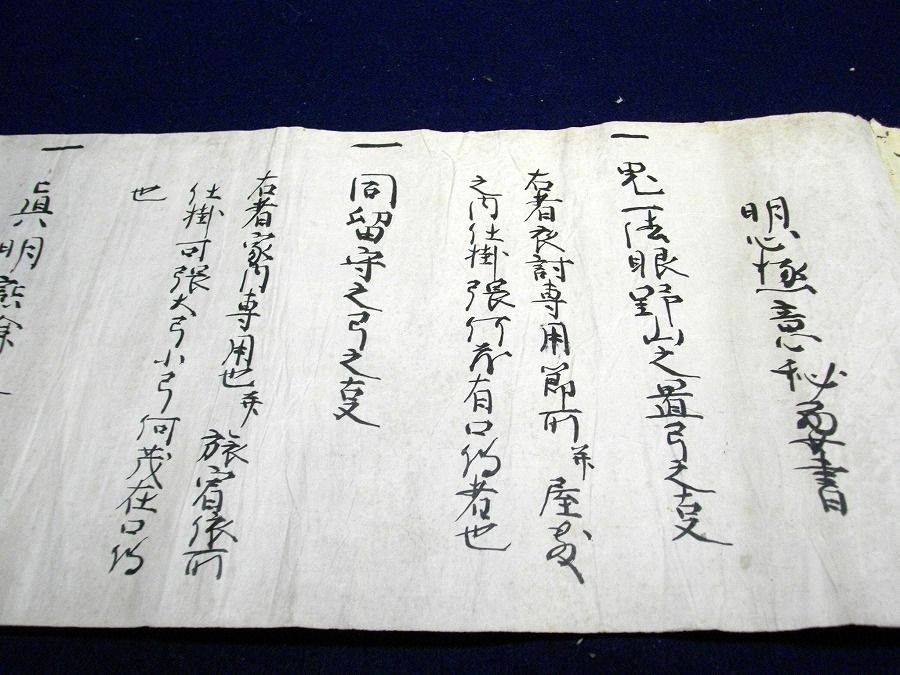 明心極意秘奥書
一 鬼一法眼野山之置弓之事
右者夜討専用節所并屋敷
之内仕掛張何茂有口伝者也
一 同留守之弓之事
右者家門専用也并旅宿依所
仕掛可張大弓小弓何茂在口伝
也
一
眞明